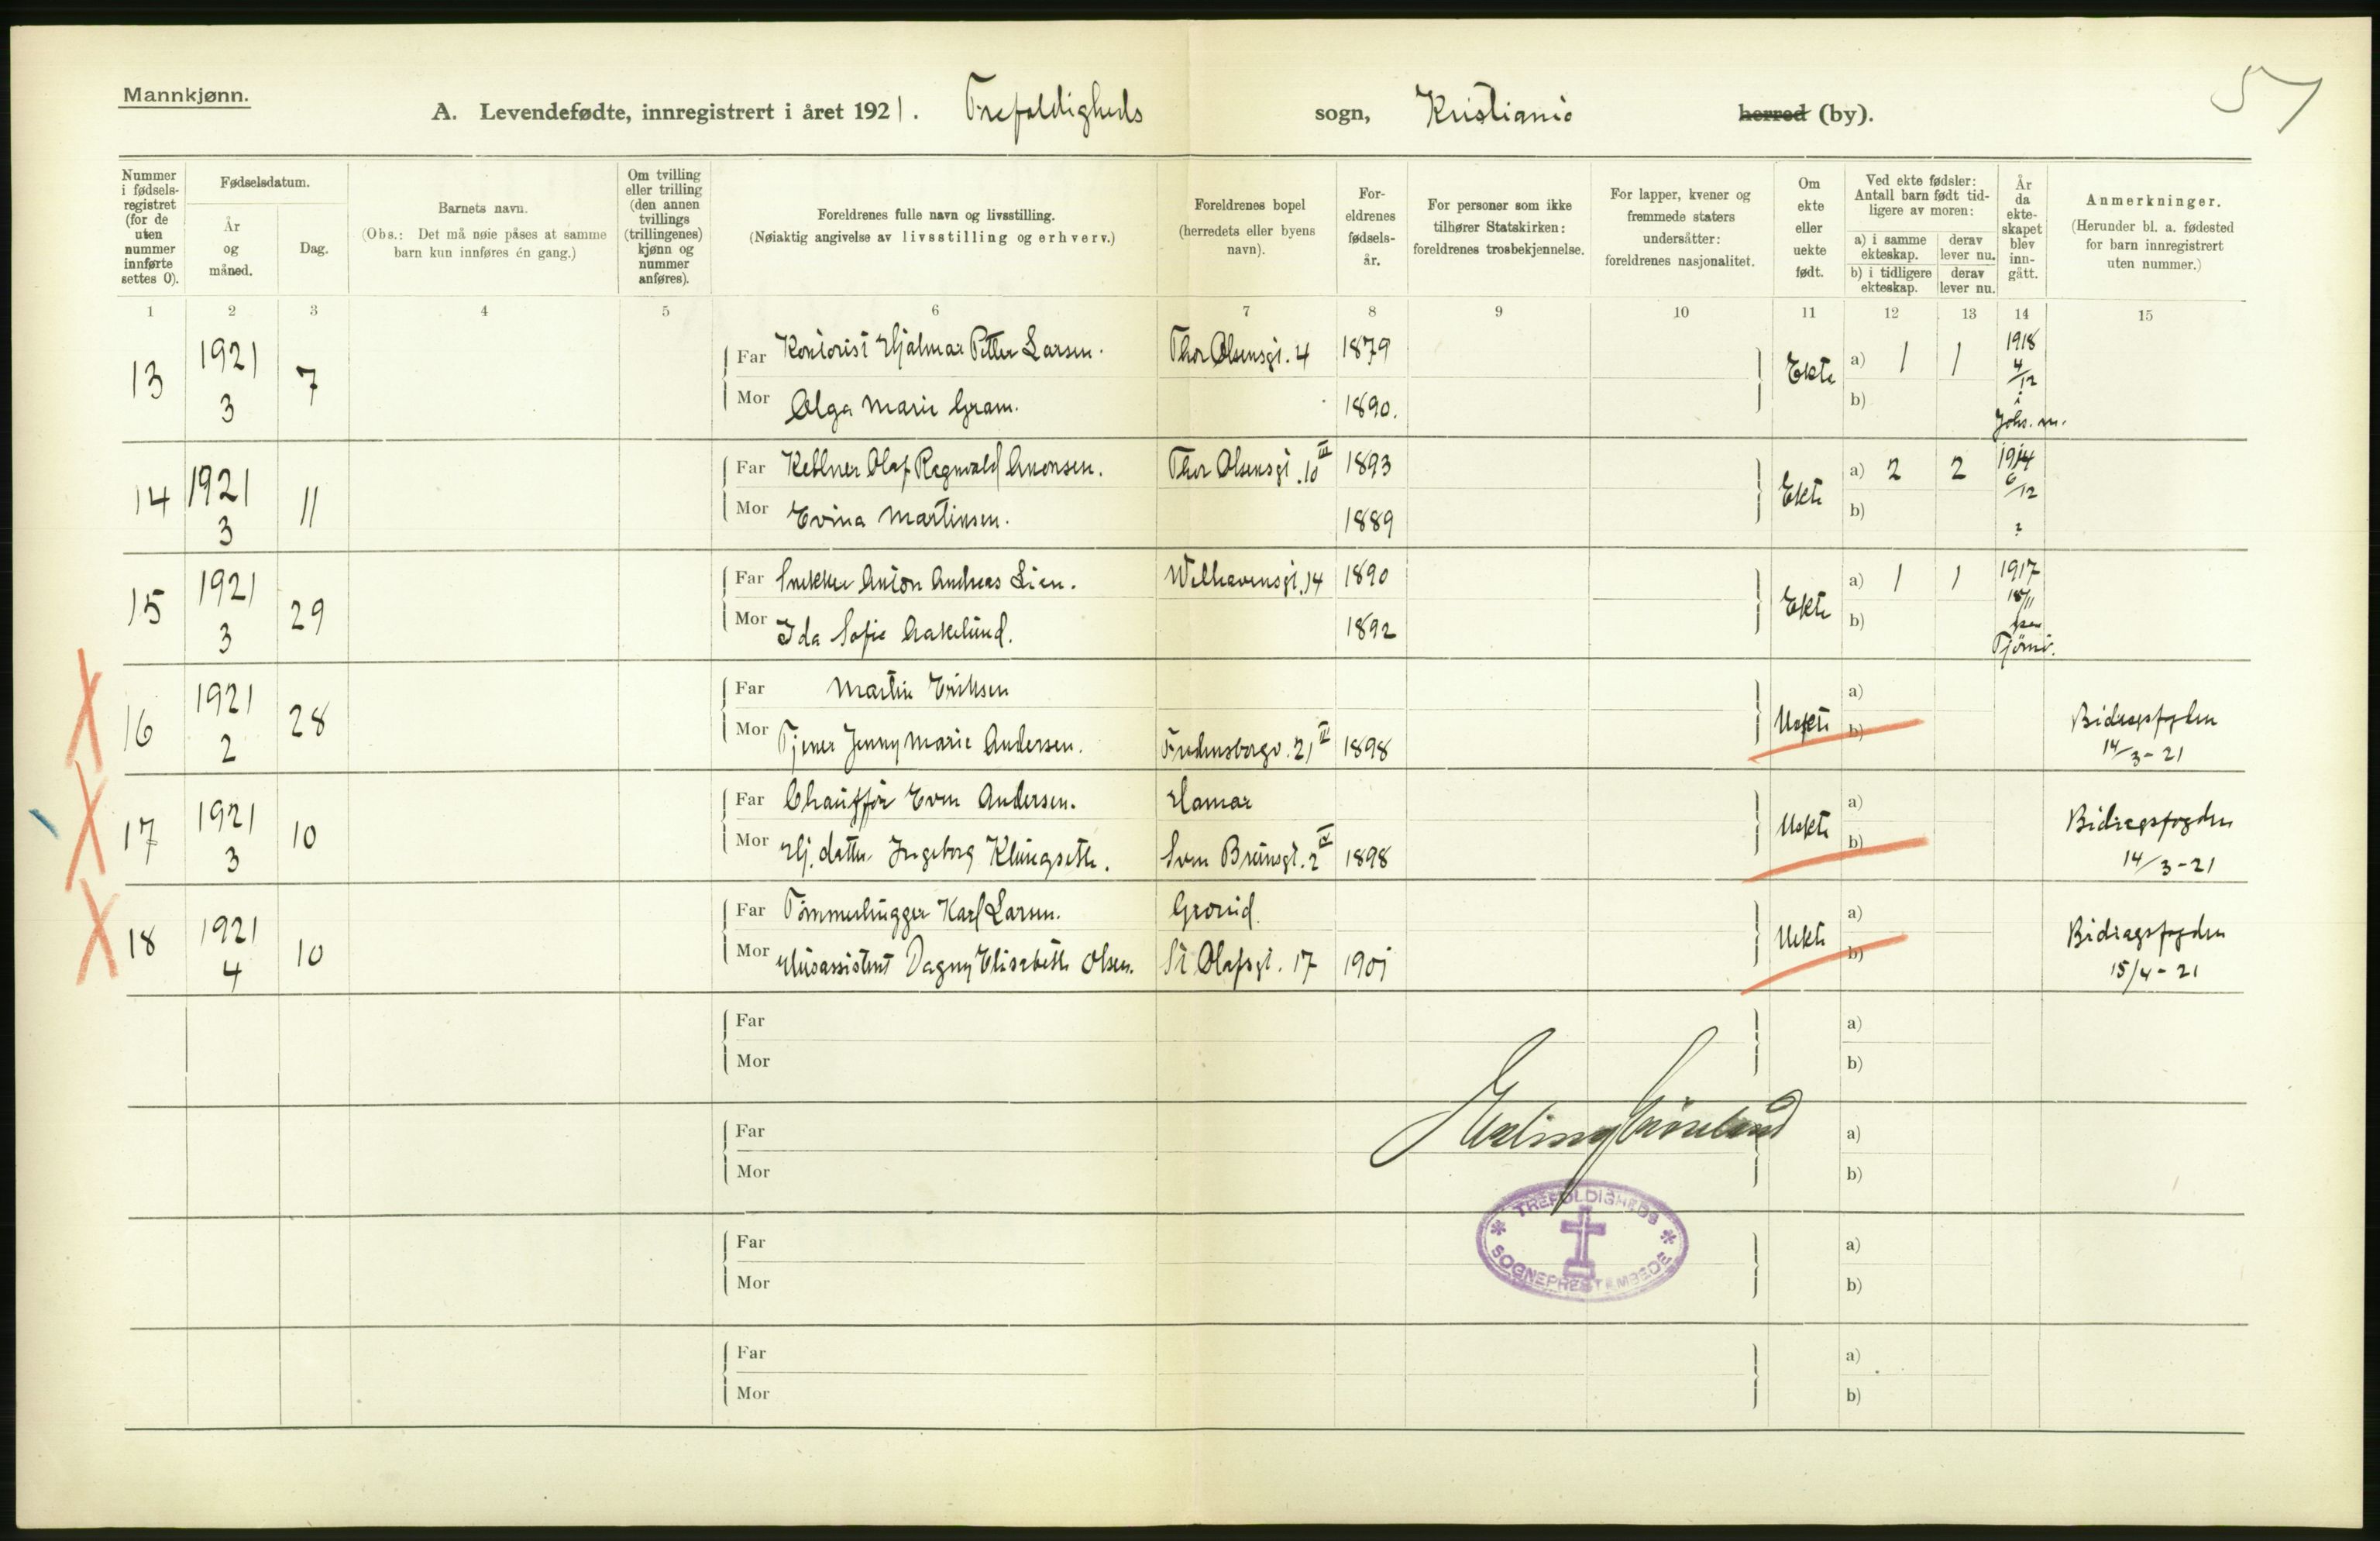 57
Mannkjønn.
A. Levendefødte, innregistrert i året 1921. Trefoldigheds sogn, Kristiania herred (by).
Nummer i fødselsregistret (for de uten nummer innførte settes 0).
Fødselsdatum.
År og måned.
Dag.
Barnets navn.
(Obs.: Det må nøie påses at samme barn kun innføres én gang.)
Om tvilling eller trilling (den annen tvillings (trillingenes) kjønn og nummer anføres).
Foreldrenes fulle navn og livsstilling.
(Nøiaktig angivelse av livsstilling og erhverv.)
Foreldrenes bopel (herredets eller byens navn).
Foreldrenes fødselsår.
For personer som ikke tilhører Statskirken: foreldrenes trosbekjennelse.
For lapper, kvener og fremmede staters undersåtter: foreldrenes nasjonalitet.
Om ekte eller uekte født.
Ved ekte fødsler: Antall barn født tidligere av moren:
a) i samme ekteskap. derav lever nu.
b) i tidligere ekteskap. derav lever nu.
År da ekteskapet blev inngått.
Anmerkninger.
(Herunder bl. a. fødested for barn innregistrert uten nummer.)
1 2 3 4 5 6 7 8 9 10 11 12 13 14 15
13 1921 3 7 Far Kontorist Hjalmar Petter Larsen. Thor Olsensgt. 4 1879 Ekte a) 1 1 1918 4/12 i Johs. m.
Mor Olga Marie Gram. 1890. b)
14 1921 3 11 Far Kellner Olaf Ragnvald Aronsen. Thor Olsensgt. 10 III 1893 Ekte a) 2 2 1914 6/12 ?
Mor Evina Martinsen. 1889 b)
15 1921 3 29 Far Snekker Anton Andreas Lien. Welhavensgt. 14 1890 Ekte a) 1 1 1917 18/11 paa Tjømø.
Mor Ida Sofie Aakelund. 1892 b)
16 1921 2 28 Far Martin Eriksen Uekte a)
Mor Tjener Jenny Marie Andersen. Fredensborgv. 21 1898 b) Bidragsfogden 14/3-21
17 1921 3 10 Far Chauffør Even Andersen. Hamar Uekte a)
Mor Hj. datter Ingeborg Klungseth. Sven Bruunsgt. 2 IV 1898 b) Bidragsfogden 14/3-21
18 1921 4 10 Far Tømmerhugger Karl Larsen. Grorud. Uekte a)
Mor Husassistent Dagny Elisabeth Olsen. St Olafsgt. 17 1901 b) Bidragsfogden 15/4-21
Far a)
Mor b)
Far a)
Mor b)
Far a)
Mor b)
Far a)
Mor b)
Erling Grønland
TREFOLDIGHEDS
SOGNEPRESTEMBEDE